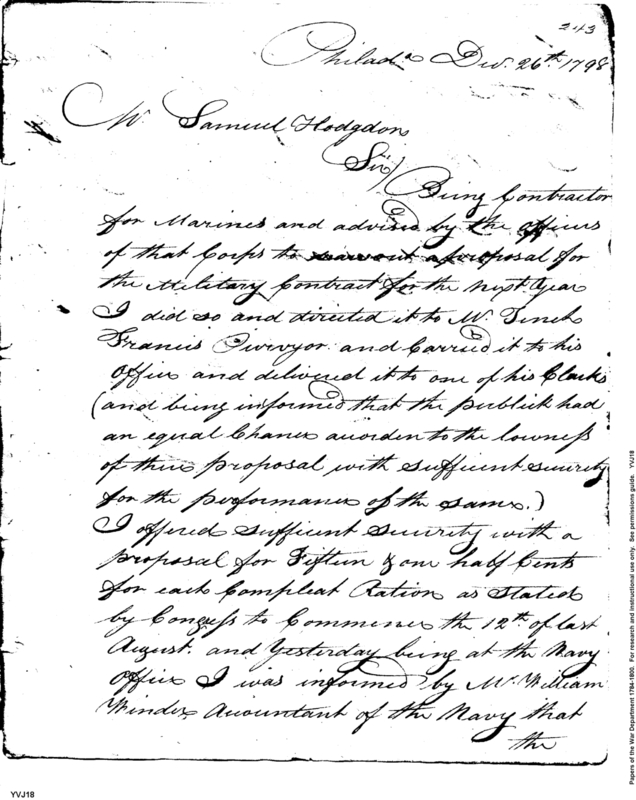 243
Philad.a Dec. 26th 1798
Mr Samuel Hodgdon
Sir/
Being Contractor
for Marines and advised by the officers
of that Corps to a proposal for
the Military Contract for the next Year
I did so and directed it to Mr Tench
Francis Purvyor and Carried it to his
Office and delivered it to one of his Clarks
(and being informed that the publick had
an equal Chance acorden to the lowness
of their proposal with sufficent security
for the performance of the same.)
I offered sufficent security with a
proposal for Fifteen & one half Cents
for each Compleat Ration as stated
by Congress to Commence the 12th of last
August. and Yesterday being at the Navy
Office I was informed by Mr William
Winder Acountant of the Navy that
the
YVJ18
Papers of the War Department 1784-1800. For research and instructional use only. See permissions guide. YVJ18